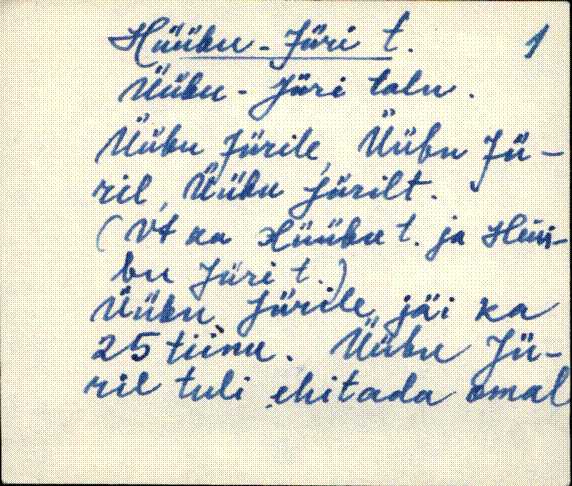 Hüübu-Jüri t. 1
Üübu-Jüri talu.
Üübu Jürile, Üübu Jü-
ril, Üübu Jürilt.
(Vt ka Hüübu t. ja Hüü-
bu Jüri t.)
Üübu Jürile jäi ka
25 tiinu. Üübu Jü-
ril tuli ehitada omal